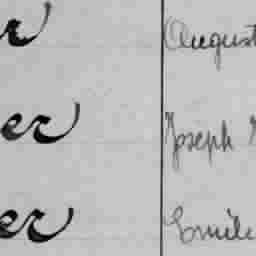 r August
er Joseph
er Emile